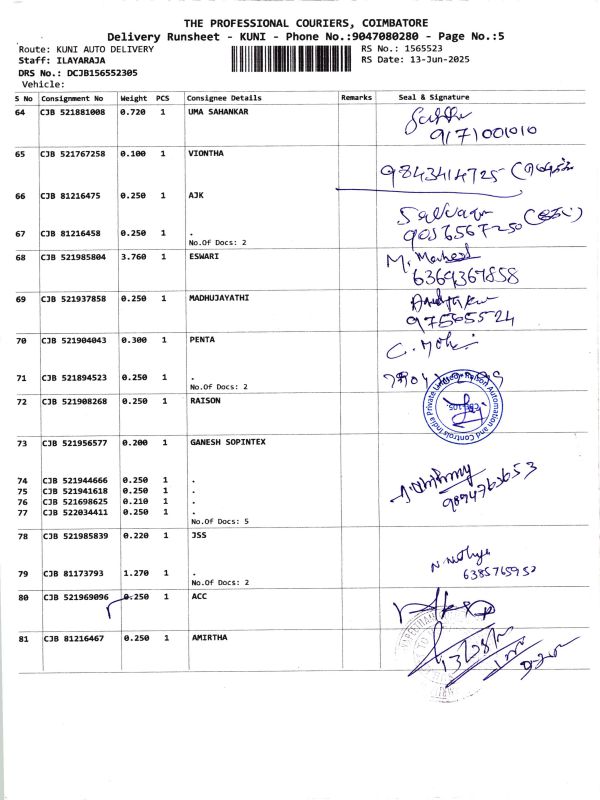 THE PROFESSIONAL COURIERS, COIMBATORE
Delivery Runsheet - KUNI - Phone No.:9047080280 - Page No.:5
Route: KUNI AUTO DELIVERY RS No.: 1565523
Staff: ILAYARAJA RS Date: 13-Jun-2025
DRS No.: DCJB156552305
Vehicle:
S No Consignment No Weight PCS Consignee Details Remarks Seal & Signature
64 CJB 521881008 0.720 1 UMA SAHANKAR
9171001010
65 CJB 521767258 0.100 1 VIONTHA
9843414725
66 CJB 81216475 0.250 1 AJK
67 CJB 81216458 0.250 1 .
9056567250
No.Of Docs: 2
68 CJB 521985804 3.760 1 ESWARI
M. Mahesh
6369367858
69 CJB 521937858 0.250 1 MADHUJAYATHI
70 CJB 521904043 0.300 1 PENTA
C. Mohi
71 CJB 521894523 0.250 1 .
No.Of Docs: 2
72 CJB 521908268 0.250 1 RAISON
Raison Automation and Controls India Private Limited
73 CJB 521956577 0.200 1 GANESH SOPINTEX
74 CJB 521944666 0.250 1 .
75 CJB 521941618 0.250 1 .
76 CJB 521698625 0.210 1 .
77 CJB 522034411 0.250 1 .
9894763653
No.Of Docs: 5
78 CJB 521985839 0.220 1 JSS
79 CJB 81173793 1.270 1 .
6385765952
No.Of Docs: 2
80 CJB 521969096 0.250 1 ACC
81 CJB 81216467 0.250 1 AMIRTHA